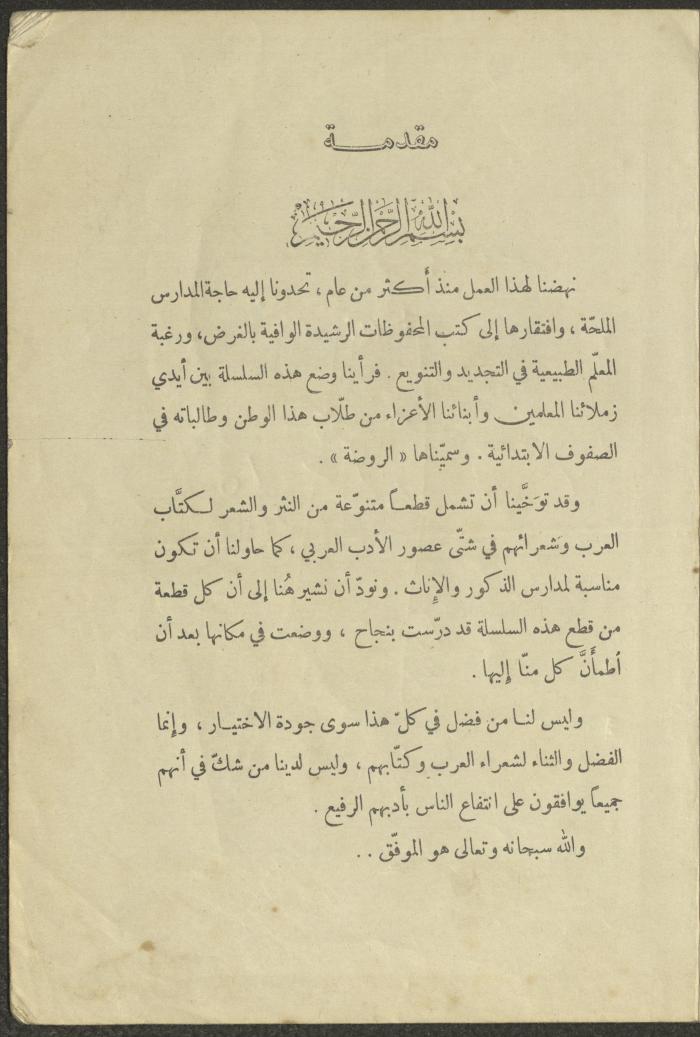 مقدمة
بسم الله الرحمن الرحيم
نهضنا لهذا العمل منذ أكثر من عام ، تحدونا إليه حاجة المدارس
الملحّة ، وافتقارها إلى كتب المحفوظات الرشيدة الوافية بالغرض ، ورغبة
المعلّم الطبيعية في التجديد والتنويع . فرأينا وضع هذه السلسلة بين أيدي
زملائنا المعلمين وأبنائنا الأعزاء من طلّاب هذا الوطن وطالباته في
الصفوف الابتدائية . وسميّناها « الروضة » .
وقد توَخَّينا أن تشمل قطعاً متنوّعة من النثر والشعر لكتَّاب
العرب وشعرائهم في شتّى عصور الأدب العربي ، كما حاولنا أن تكون
مناسبة لمدارس الذكور والإناث . ونودّ أن نشير هُنا إلى أن كل قطعة
من قطع هذه السلسلة قد درّست بنجاح ، ووضعت في مكانها بعد أن
أطمأَنَّ كل منّا إليها .
وليس لنا من فضل في كلّ هذا سوى جودة الاختيار ، وإنما
الفضل والثناء لشعراء العرب وكتّابهم ، وليس لدينا من شكّ في أنهم
جميعاً يوافقون على انتفاع الناس بأدبهم الرفيع .
والله سبحانه وتعالى هو الموفّق . .